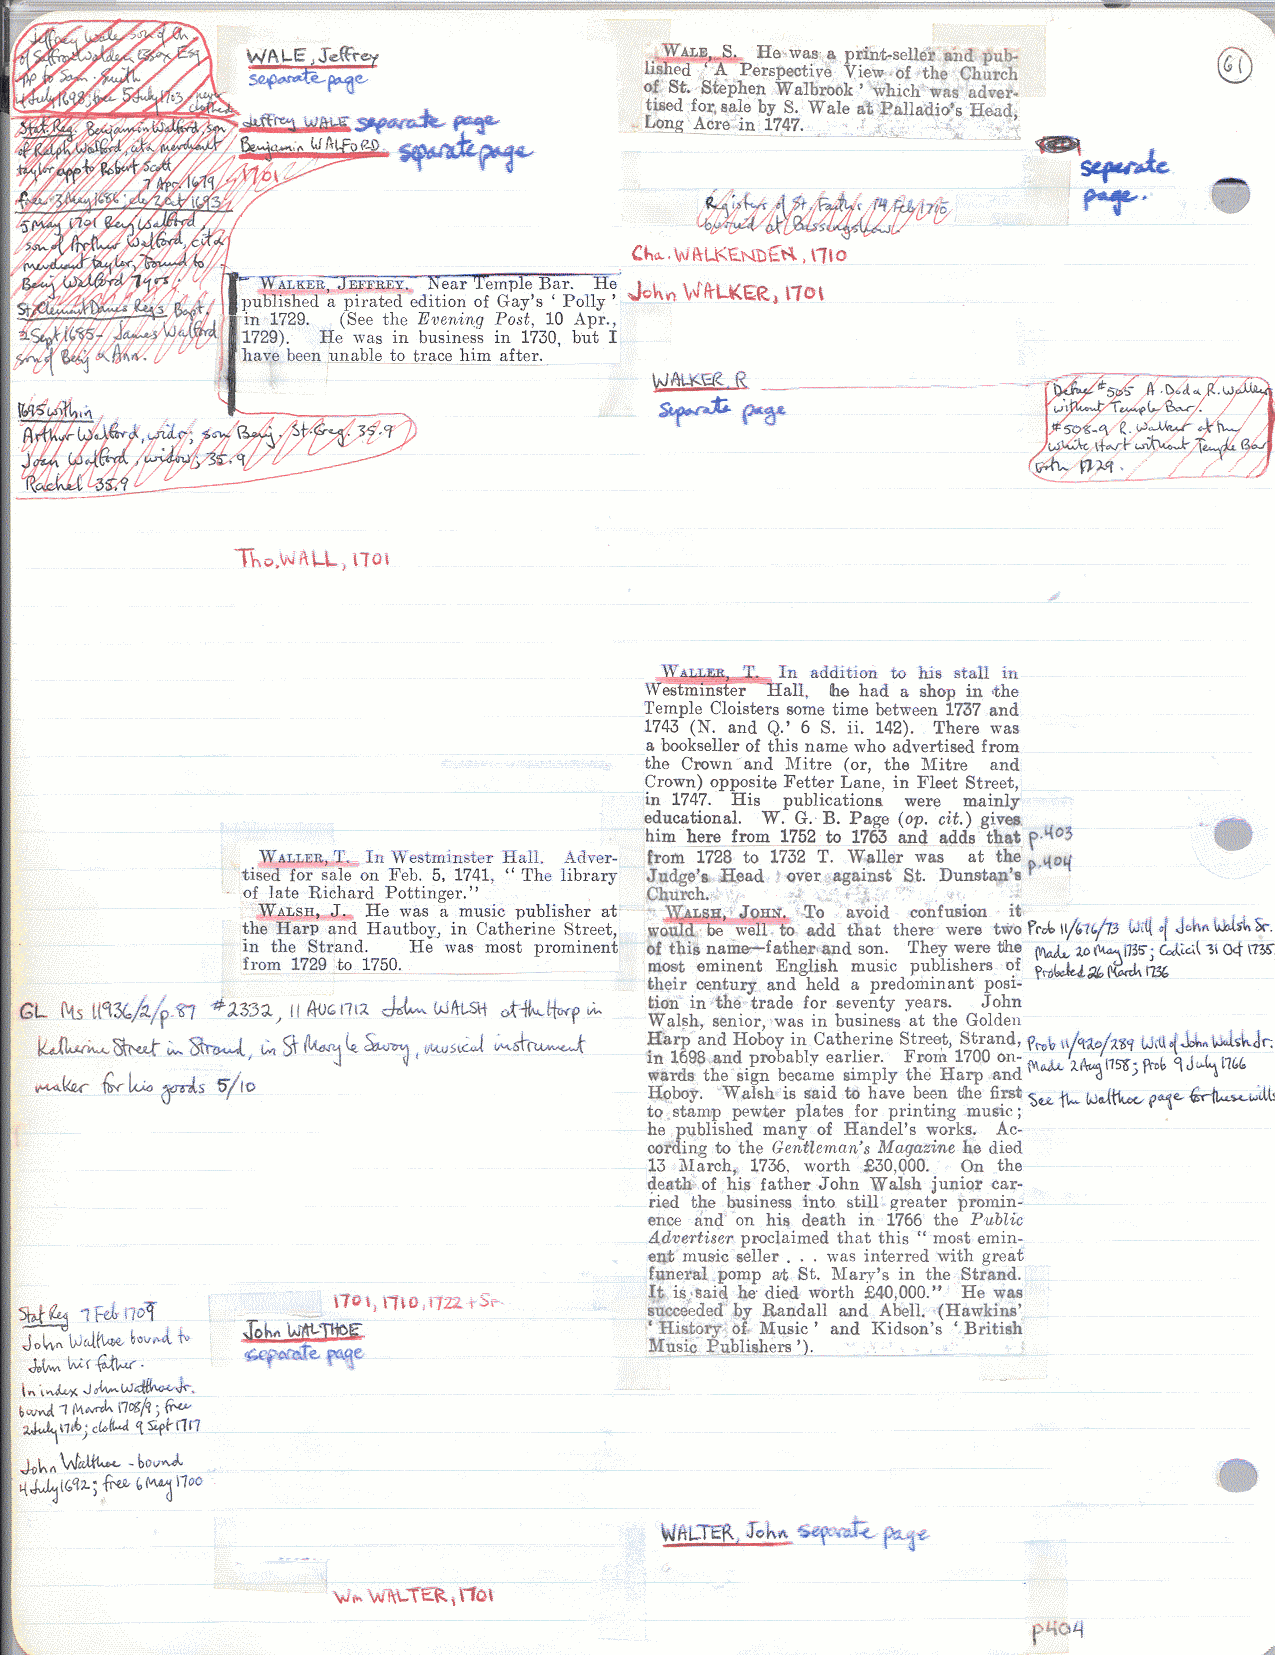 61
Jeffrey Wale son of Jn
of Saffron Walden Essex Esq
app to Sam. Smith
4 July 1698; free 5 July 1703 never
clothed
WALE, Jeffrey
separate page
Jeffrey WALE separate page
Benjamin WALFORD separate page
1701
Stat. Reg. Benjamin Walford, son
of Ralph Walford, cita merchant
taylor app to Robert Scott
7 Apr. 1679
free 3 May 1686; cle 2 oct 1693
5 May 1701 Benj Walford,
son of Arthur Walford, cita
merchant taylor, bound to
Benj Walford 7 yrs.
St. Clement Danes Regs Bapt.
2 Sept 1685 - James Walford
son of Benj & Ann.
1695 within
Arthur Walford, widr; son Benj. St. Greg. 35.9
Joan Walford, widow; 35.9
Rachel 35.9
WALKER, JEFFREY. Near Temple Bar. He
published a pirated edition of Gay's ' Polly '
in 1729. (See the Evening Post, 10 Apr.,
1729). He was in business in 1730, but I
have been unable to trace him after.
Tho. WALL, 1701
WALLER, T. In Westminster Hall. Adver-
tised for sale on Feb. 5, 1741, " The library
of late Richard Pottinger."
WALSH, J. He was a music publisher at
the Harp and Hautboy, in Catherine Street,
in the Strand. He was most prominent
from 1729 to 1750.
GL Ms 11936/2/p.87 #2332, 11 AUG 1712 John WALSH at the Harp in
Katherine Street in Strand, in St Mary le Savoy, musical instrument
maker for his goods 5/10
Stat Reg 7 Feb 1709
John Walthoe bound to
John his father.
In index John Walthoe Jr.
bound 7 March 1708/9; free
2 July 1716; clothed 9 Sept 1717
John Walthoe - bound
4 July 1692; free 6 May 1700
1701, 1710, 1722 + Sr.
John WALTHOE
separate page
Wm WALTER, 1701
WALE, S. He was a print-seller and pub-
lished ' A Perspective View of the Church
of St. Stephen Walbrook ' which was adver-
tised for sale by S. Wale at Palladio's Head,
Long Acre in 1747.
seperate
page.
Registers of St. Faiths 14 Feb 1710
buried at Bassingshaw
Cha. WALKENDEN, 1710
John WALKER, 1701
WALKER, R
Separate page
Defoe #505 A. Dod & R. Walker
without Temple Bar.
#508-9 R. Walker at the
White Hart without Temple Bar
both 1729.
WALLER, T. In addition to his stall in
Westminster Hall, he had a shop in the
Temple Cloisters some time between 1737 and
1743 (N. and Q.' 6 S. ii. 142). There was
a bookseller of this name who advertised from
the Crown and Mitre (or, the Mitre and
Crown) opposite Fetter Lane, in Fleet Street,
in 1747. His publications were mainly
educational. W. G. B. Page (op. cit.) gives
him here from 1752 to 1763 and adds that p.403
from 1728 to 1732 T. Waller was at the p.404
Judge's Head over against St. Dunstan's
Church.
WALSH, JOHN. To avoid confusion it
would be well to add that there were two
of this name—father and son. They were the
most eminent English music publishers of
their century and held a predominant posi-
tion in the trade for seventy years. John
Walsh, senior, was in business at the Golden
Harp and Hoboy in Catherine Street, Strand,
in 1698 and probably earlier. From 1700 on-
wards the sign became simply the Harp and
Hoboy. Walsh is said to have been the first
to stamp pewter plates for printing music;
he published many of Handel's works. Ac-
cording to the Gentleman's Magazine he died
13 March, 1736, worth £30,000. On the
death of his father John Walsh junior car-
ried the business into still greater promin-
ence and on his death in 1766 the Public
Advertiser proclaimed that this " most emin-
ent music seller . . . was interred with great
funeral pomp at St. Mary's in the Strand.
It is said he died worth £40,000." He was
succeeded by Randall and Abell. (Hawkins'
' History of Music ' and Kidson's ' British
Music Publishers ').
Prob 11/676/73 Will of John Walsh Sr.
Made 20 May 1735; Codicil 31 Oct 1735
Probated 26 March 1736
Prob 11/920/289 Will of John Walsh Jr.
Made 2 Aug 1758; Prob 9 July 1766
See the Walthoe page for these wills
WALTER, John separate page
p404